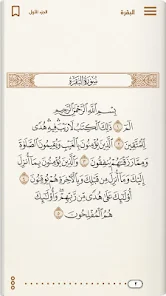 البقرة
الجزء الأول
سورة البقرة
بسم الله الرحمن الرحيم
الم ١ ذلك الكتب لا ريب فيه هدى
للمتقين ٢ الذين يؤمنون بالغيب ويقيمون الصلوة
ومما رزقنهم ينفقون ٣ والذين يؤمنون بما أنزل
إليك وما أنزل من قبلك وبالآخرة هم يوقنون ٤
أولئك على هدى من ربهم وأولئك
هم المفلحون ٥
٢